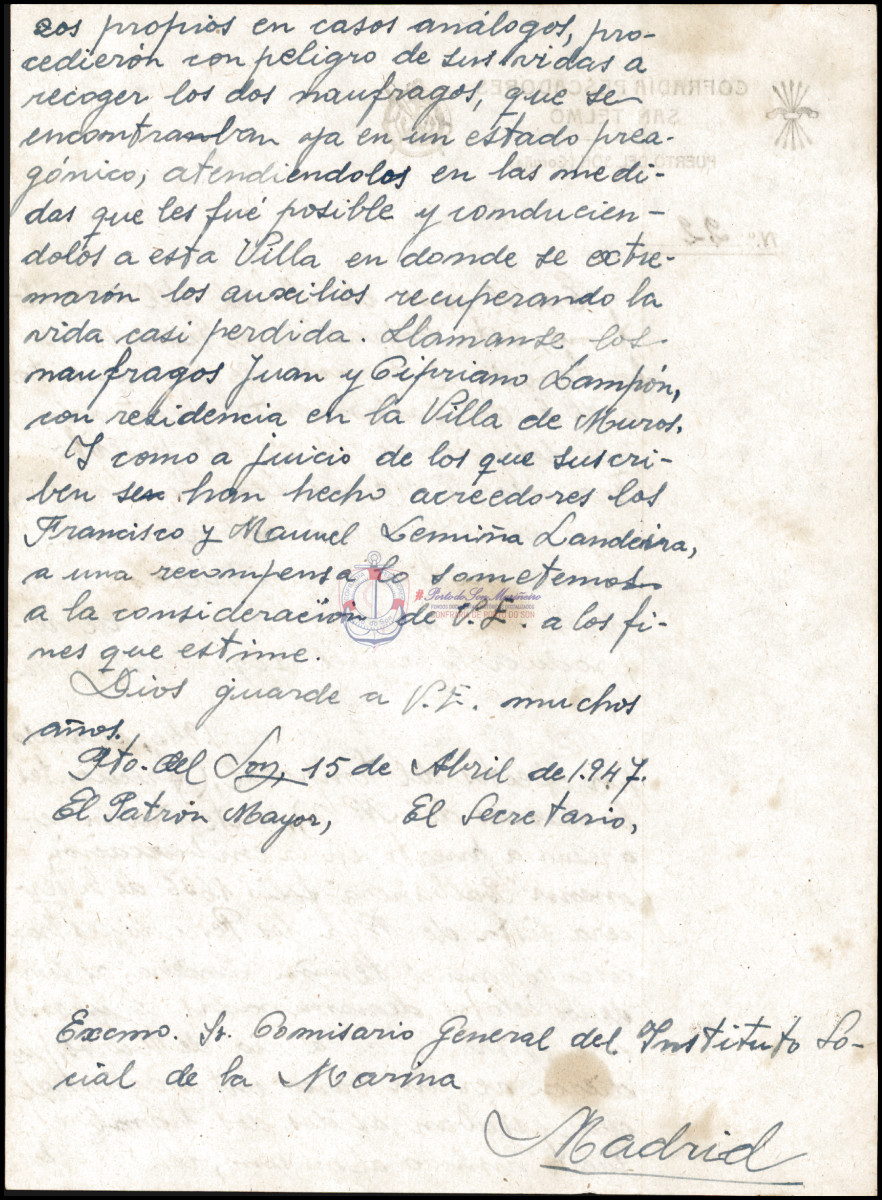 zos propios en casos análogos, pro-
cedierón con peligro de sus vidas a
recoger los dos naufragos, que se
encontraban ya en un estado prea-
gónico, atendiendolos en las medi-
das que les fué posible y conducien-
dolos a esta Villa en donde se extre-
marón los auxilios recuperando la
vida casi perdida. Llamanse los
naufragos Juan y Cipriano Lampón,
con residencia en la Villa de Muros.
Y como a juicio de los que suscri-
ben se han hecho acreedores los
Francisco y Manuel Lemiña Landeira,
a una recompensa lo sometemos
a la consideración de V.E. a los fi-
nes que estime.
Dios guarde a V.E. muchos
años.
Pto. del Son, 15 de Abril de 1.947.
El Patrón Mayor, El Secretario,
Excmo. Sr. Comisario General del Instituto So-
cial de la Marina
Madrid
COFRADIA PESCADORES
SAN TELMO
N.º 22
#PortodoSonMariñeiro
CONFRARÍA DE PORTO DO SON